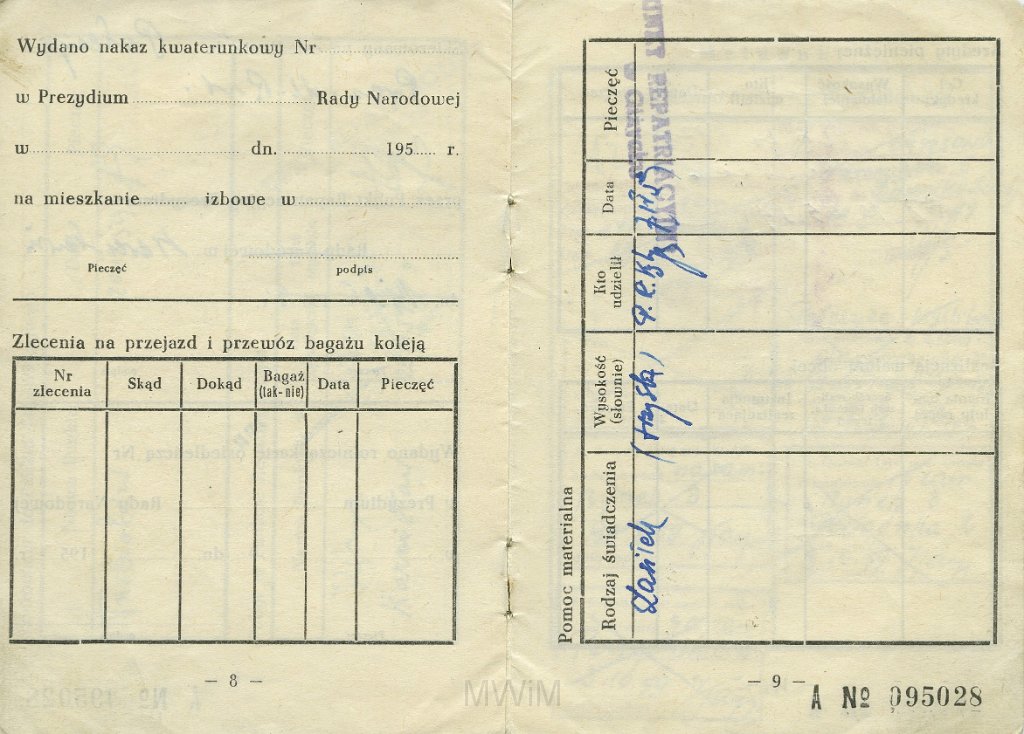 Wydano nakaz kwaterunkowy Nr
w Prezydium .......... Rady Narodowej
w .......... dn. .......... 195..... r.
na mieszkanie .......... izbowe w ..........
Pieczęć podpis
Zlecenia na przejazd i przewóz bagażu koleją
Nr zlecenia Skąd Dokąd Bagaż (tak-nie) Data Pieczęć
— 8 —
Pomoc materialna
Rodzaj świadczenia Wysokość (słownie) Kto udzielił Data Pieczęć
Zasiłek
PUNKT REPATRIACYJNY
— 9 —
A № 095028
MWiM